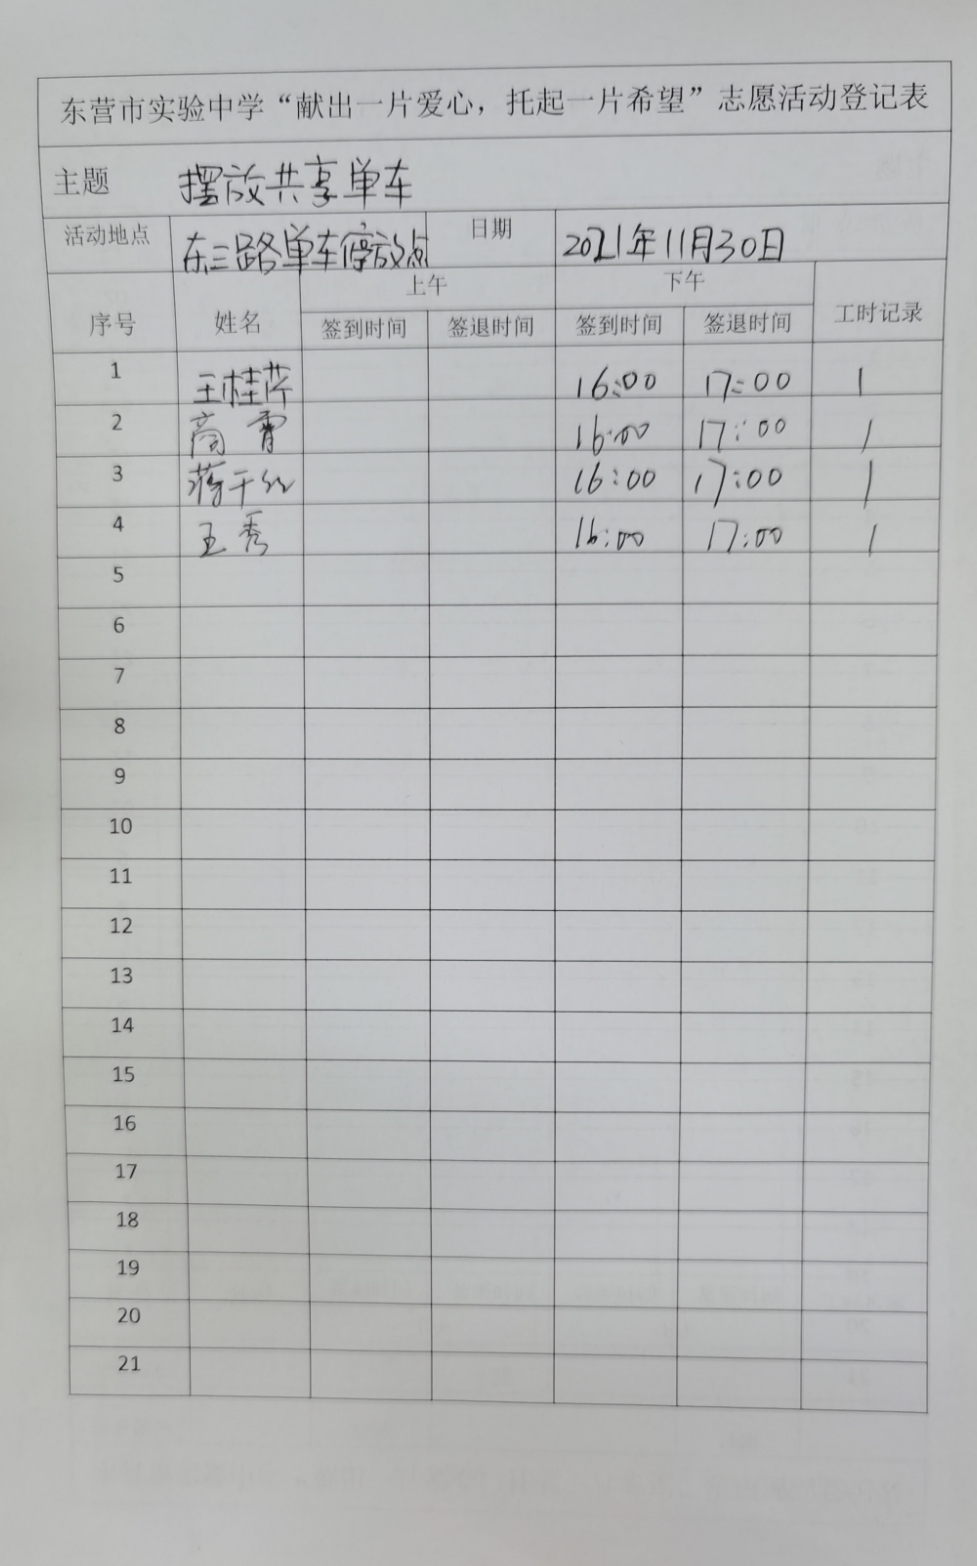 东营市实验中学“献出一片爱心，托起一片希望”志愿活动登记表
主题 摆放共享单车
活动地点 东三路单车停放点 日期 2021年11月30日
序号 姓名 上午 下午 工时记录
签到时间 签退时间 签到时间 签退时间
1 王桂芹 16:00 17:00 1
2 商霄 16:00 17:00 1
3 蒋千 16:00 17:00 1
4 王秀 16:00 17:00 1
5
6
7
8
9
10
11
12
13
14
15
16
17
18
19
20
21